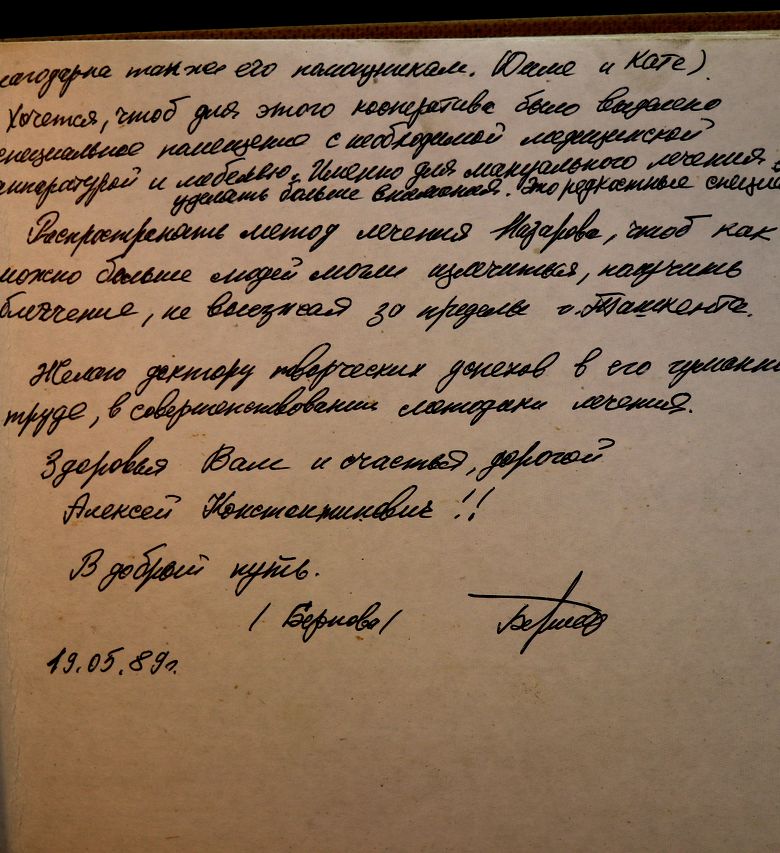 лагодарна также его помощникам. (Диме и Кате).
Хочется, чтоб для этого кооператива было выделено
специальное помещение с необходимой медицинской
аппаратурой и мебелью. Именно для мануального лечения
уделить больше внимания. Это редкостные специал
Распространять метод лечения Назарова, чтоб как
можно больше людей могли излечиться, получить
облегчение, не выезжая за пределы г. Ташкента.
Желаю доктору творческих успехов в его гуманн
труде, в совершенствовании методики лечения.
Здоровья Вам и счастья, дорогой
Алексей Константинович!!
В добрый путь.
/ Бернова/
19.05.89г.